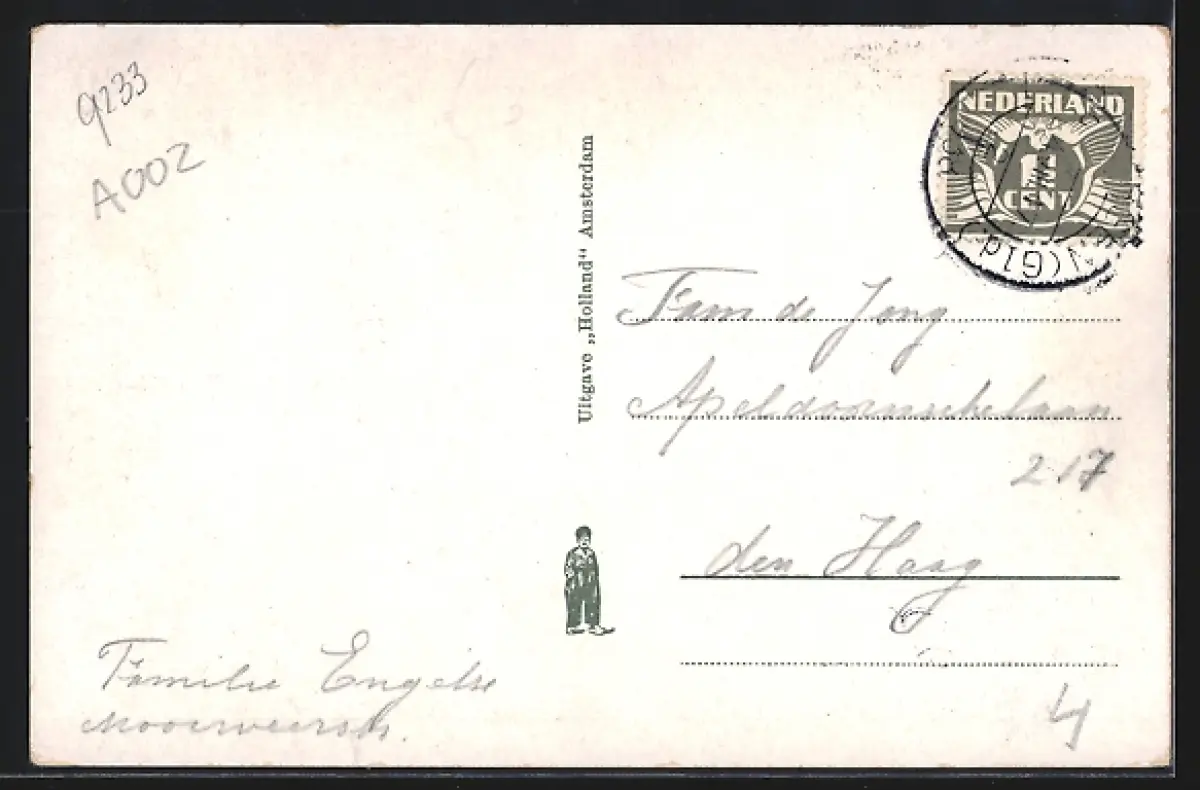 9233
A002
NEDERLAND
CENT
(Gld.)
Uitgave „Holland" Amsterdam
Fam de Jong
Apeldoornschelaan
217
den Haag
Familie Engelse
4